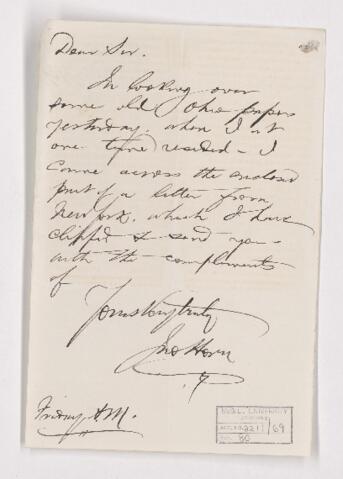 Dear Sir.
In looking over
some old Ohio papers
yesterday, when I at
one time resided - I
came across the enclosed
part of a letter from
New York, which I have
clipped & send you
with the compliments
of
Yours very truly
Jno Horn
Friday A.M.
McGILL UNIVERSITY
ACC. NO. 2211/69
REF. 80